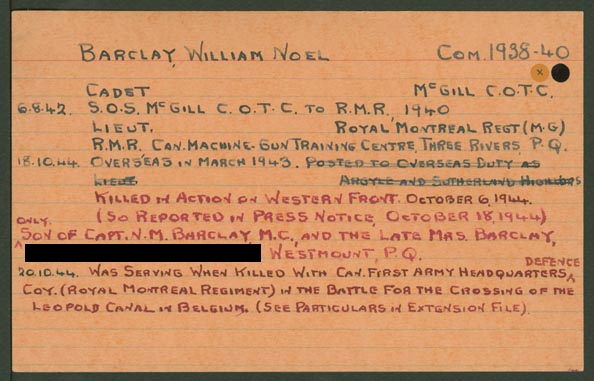 BARCLAY, WILLIAM NOEL COM. 1938-40
x
CADET McGILL C.O.T.C.
6.8.42. S.O.S. McGILL C.O.T.C. TO R.M.R., 1940
LIEUT. ROYAL MONTREAL REGT (M-G)
R.M.R. CAN. MACHINE-GUN TRAINING CENTRE, THREE RIVERS, P.Q.
18.10.44. OVERSEAS IN MARCH 1943. POSTED TO OVERSEAS DUTY AS
LIEUT. ARGYLE AND SUTHERLAND HIGHLDRS
KILLED IN ACTION ON WESTERN FRONT. OCTOBER 6, 1944.
(SO REPORTED IN PRESS NOTICE, OCTOBER 18, 1944)
ONLY
SON OF CAPT. N.M. BARCLAY, M.C., AND THE LATE MRS. BARCLAY,
WESTMOUNT, P.Q.
DEFENCE
20.10.44. WAS SERVING WHEN KILLED WITH CAN. FIRST ARMY HEADQUARTERS
COY. (ROYAL MONTREAL REGIMENT) IN THE BATTLE FOR THE CROSSING OF THE
LEOPOLD CANAL IN BELGIUM. (SEE PARTICULARS IN EXTENSION FILE).